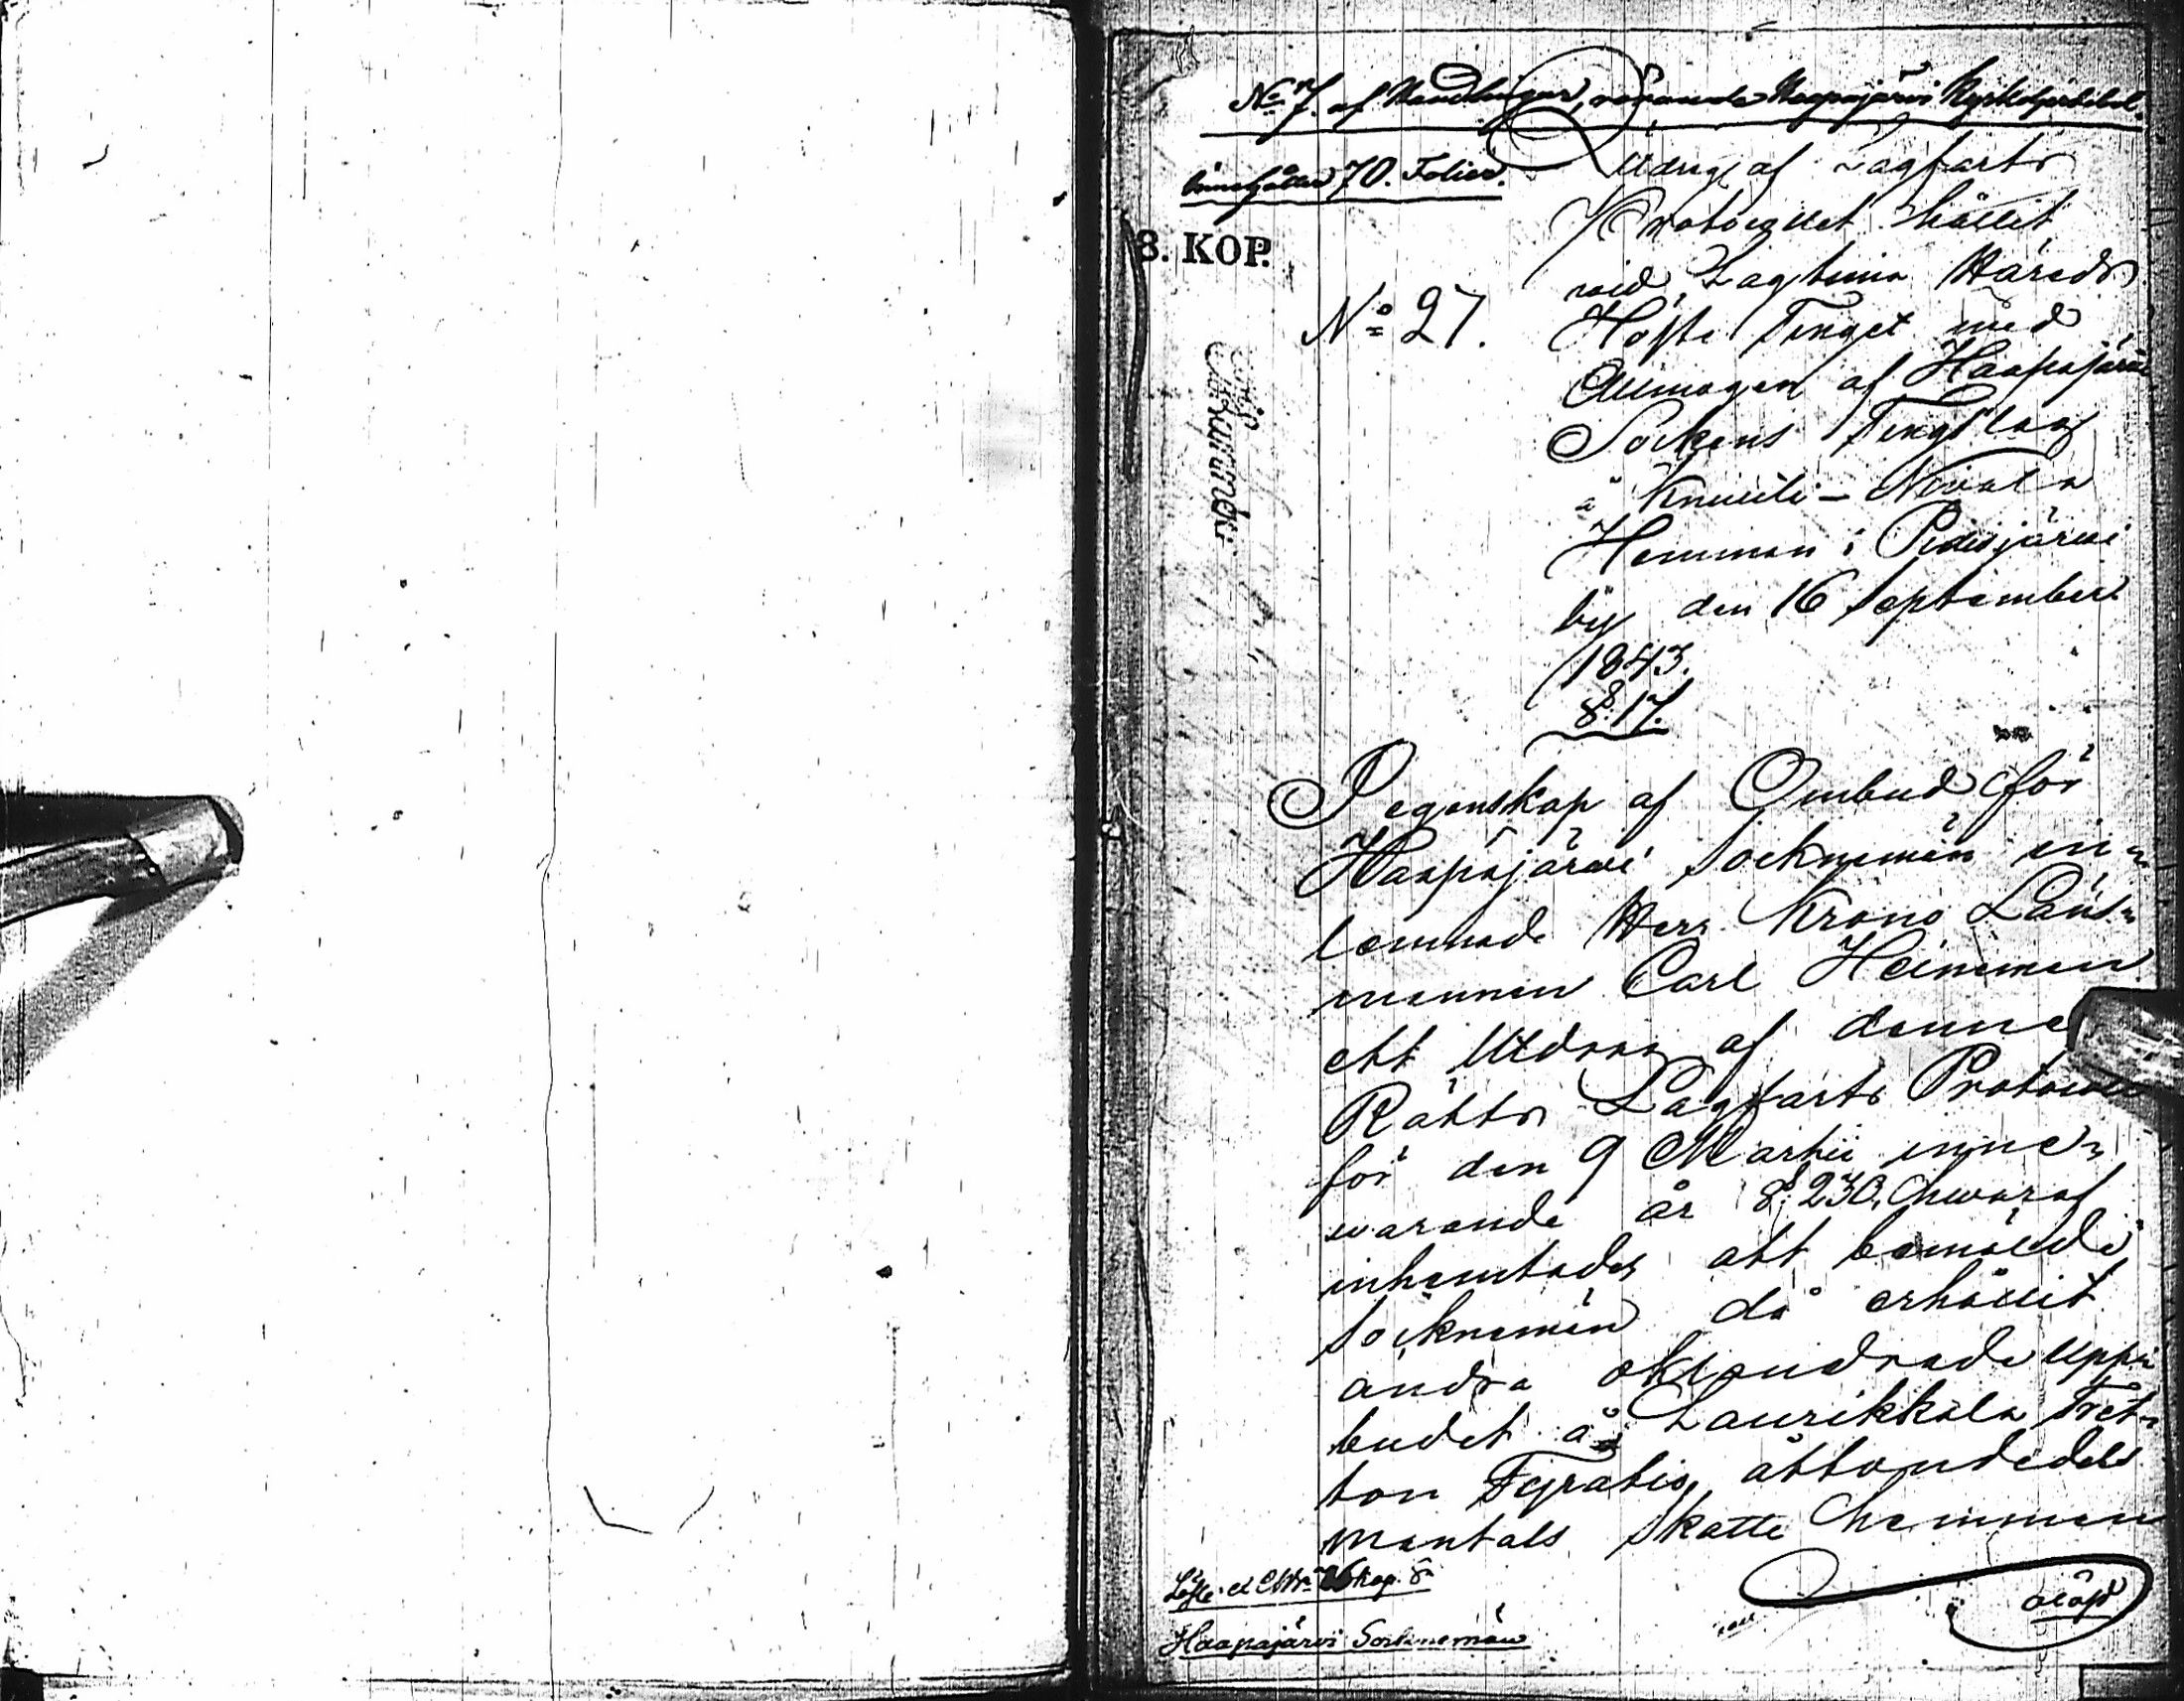 No 7. af Handlingar, rörande Haapajärvi Kyrkoherdebol.
innehåller 70. Folier.
Utdrag af Lagfarts
Protocollet hållit
vid Lagtima Härads
Höste Tinget med
Allmogen af Haapajärvi
Sockens Tingslag
å Knuuti-Nivala
Hemman i Pidisjärvi
by den 16 September
1843.
§. 17.
8. KOP.
No 27.
I egenskap af Ombud för
Haapajärvi Socknemän in-
lemnade Herr Krono Läns-
mannen Carl Heinman
ett Utdrag af denne
Rätts Lagfarts Protocoll
för den 9 Martii inne-
warande år §. 230, hwaraf
inhemtades att bemälde
Socknemän då erhållit
andra oklandrade upp-
budet å Laurikkala Tret-
ton Fyratio åttondedels
mantals Skatte hemman
Haapajärvi Socknemän